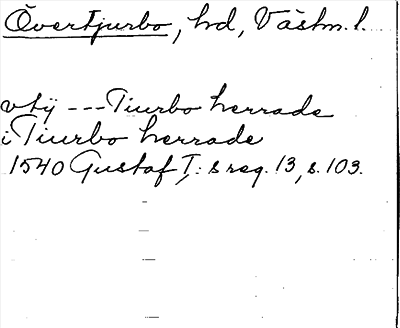 Övertjurbo, hd, Västm. l.
vtij --- Tiurbo herrade
i Tiurbo herrade
1540 Gustaf I: s reg. 13, s. 103.